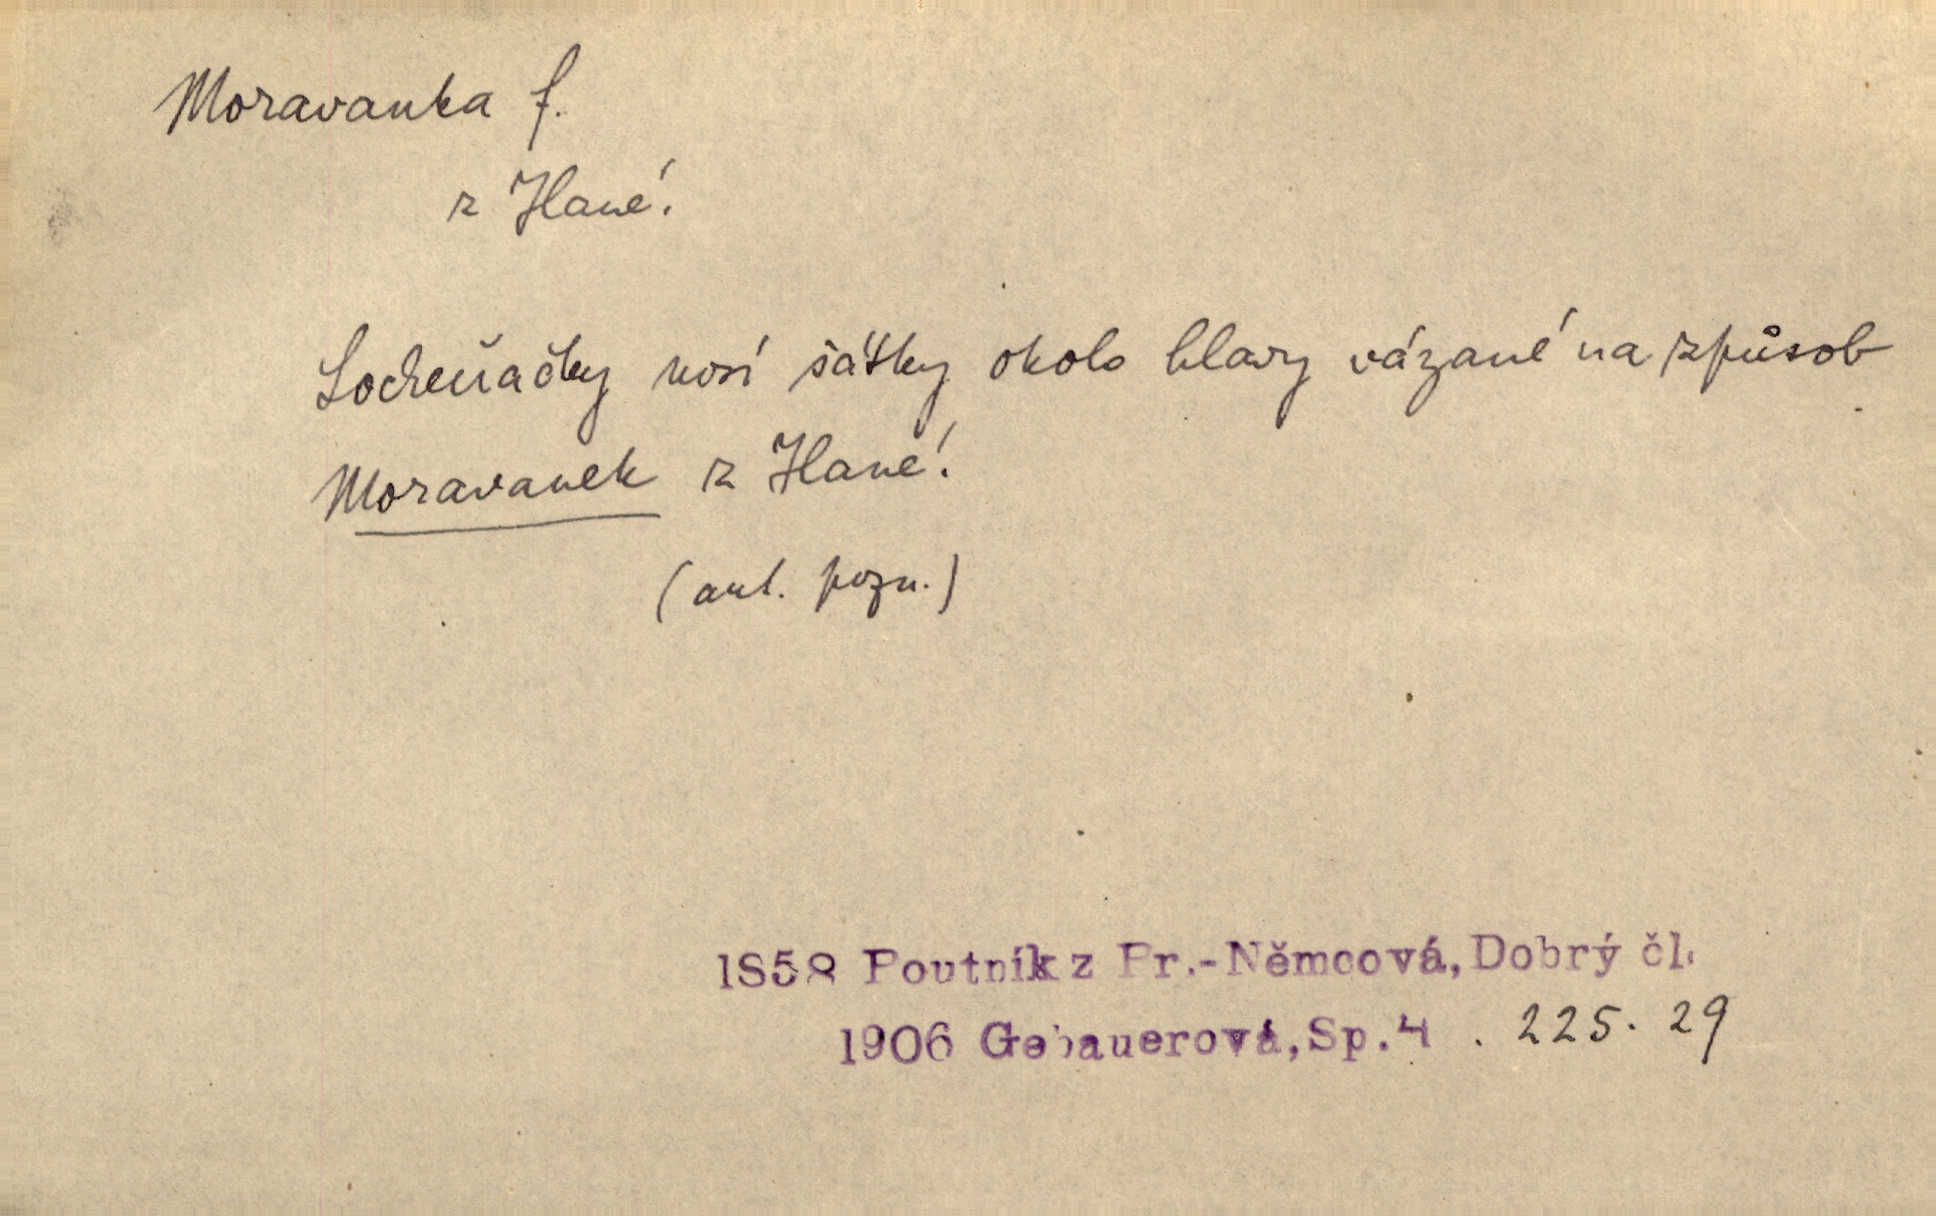 Moravanka f.
z Hané.
Locheňačky nosí šátky okolo hlavy vázané na způsob
Moravanek z Hané.
(aut. pozn.)
1858 Poutník z Pr.-Němcová, Dobrý čl.
1906 Gebauerová, Sp.4 . 225. 29